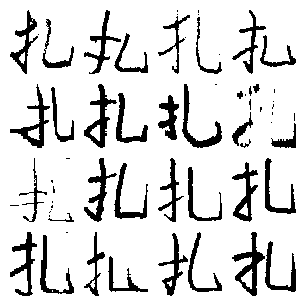 扎扎扎扎
扎扎扎扎
扎扎扎扎
扎扎扎扎